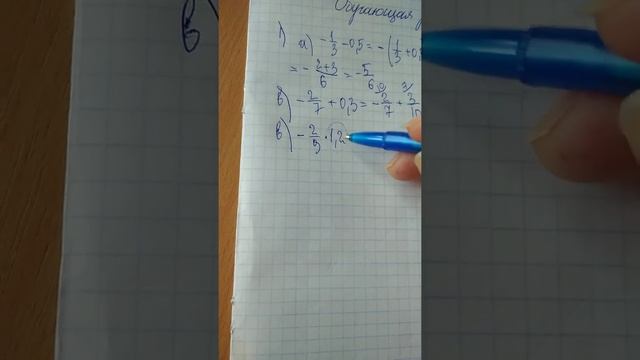 Обучающая
1) а) -1/3 - 0,5 = -(1/3 + 0,
= - 2+3/6 = -5/6
б) -2/7 + 0,3 = -2/7 + 3/10
в) -2/5 · 1,2